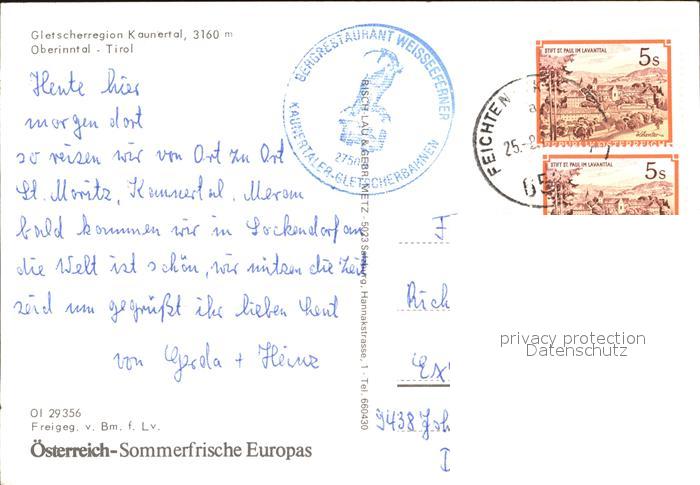 Gletscherregion Kaunertal, 3160 m
Oberinntal - Tirol
Heute hier
morgen dort
so reisen wir von Ort zu Ort
St. Moritz, Kaunertal, Meran
bald kommen wir in Lockendorf an
die Welt ist schön, wir nützen die Zeit
seid nun gegrüßt ihr lieben Leut
von Gerda + Heinz
OI 29356
Freigeg. v. Bm. f. Lv.
Österreich-Sommerfrische Europas
BERGRESTAURANT WEISSEEFERNER
2750
KAUNERTALER-GLETSCHERBAHNEN
RISCH-LAU & GEBR. METZ, 5023 Salzburg, Hannakstrasse, 1 - Tel. 660430
FEICHTEN
25.-2
STIFT ST. PAUL IM LAVANTTAL
5s
REPUBLIK ÖSTERREICH
STIFT ST. PAUL IM LAVANTTAL
5s
F
Rich
Ex
9438
privacy protection
Datenschutz